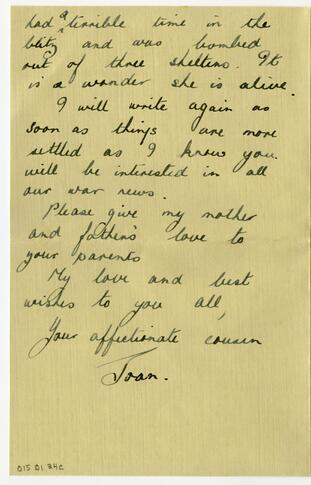 had a terrible time in the
blitz and was bombed
out of three shelters. It
is a wonder she is alive.
I will write again as
soon as things are more
settled as I know you
will be interested in all
our war news.
Please give my mother
and father's love to
your parents
My love and best
wishes to you all,
Your affectionate cousin
Joan.
015 01 34c